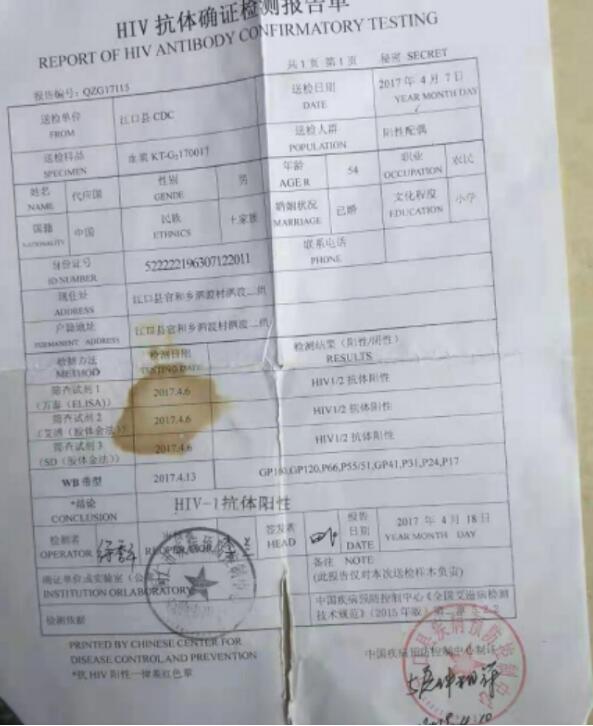 HIV 抗体确证检测报告单
REPORT OF HIV ANTIBODY CONFIRMATORY TESTING
共1页 第1页 秘密 SECRET
报告编号：QZG17115
送检单位 FROM 江口县 CDC 送检日期 DATE 2017 年 4 月 7 日 YEAR MONTH DAY
送检人群 POPULATION 阳性配偶
送检样品 SPECIMEN 血浆 KT-G₂170017 年龄 AGE R 54 职业 OCCUPATION 农民
姓名 NAME 代应国 性别 GENDE 男 婚姻状况 MARRIAGE 已婚 文化程度 EDUCATION 小学
国籍 NATIONALITY 中国 民族 ETHNICS 土家族 联系电话 PHONE
身份证号 ID NUMBER 522222196307122011
现住址 ADDRESS 江口县官和乡泗渡村泗渡二组
户籍地址 PERMANENT ADDRESS 江口县官和乡泗渡村泗渡二组
检测方法 METHOD 检测日期 TESTING DATE 检测结果（阳性/阴性） RESULTS
筛查试剂 1 (万泰 (ELISA)) 2017.4.6 HIV1/2 抗体阳性
筛查试剂 2 (胶体金法)) 2017.4.6 HIV1/2 抗体阳性
筛查试剂 3 (SD (胶体金法)) 2017.4.6 HIV1/2 抗体阳性
WB 带型 2017.4.13 GP160,GP120,P66,P55/51,GP41,P31,P24,P17
*结论 CONCLUSION HIV-1抗体阳性
检测者 OPERATOR 签发者 HEAD 报告日期 DATE 2017 年 4 月 18 日 YEAR MONTH DAY
确证单位或实验室（公章） INSTITUTION ORLABORATORY 备注 NOTE
(此报告仅对本次送检样本负责)
检测依据 中国疾病预防控制中心《全国艾滋病检测
技术规范》(2015 年版)
PRINTED BY CHINESE CENTER FOR
DISEASE CONTROL AND PREVENTION
中国疾病预防控制中心制订
*抗 HIV 阳性一律盖红色章